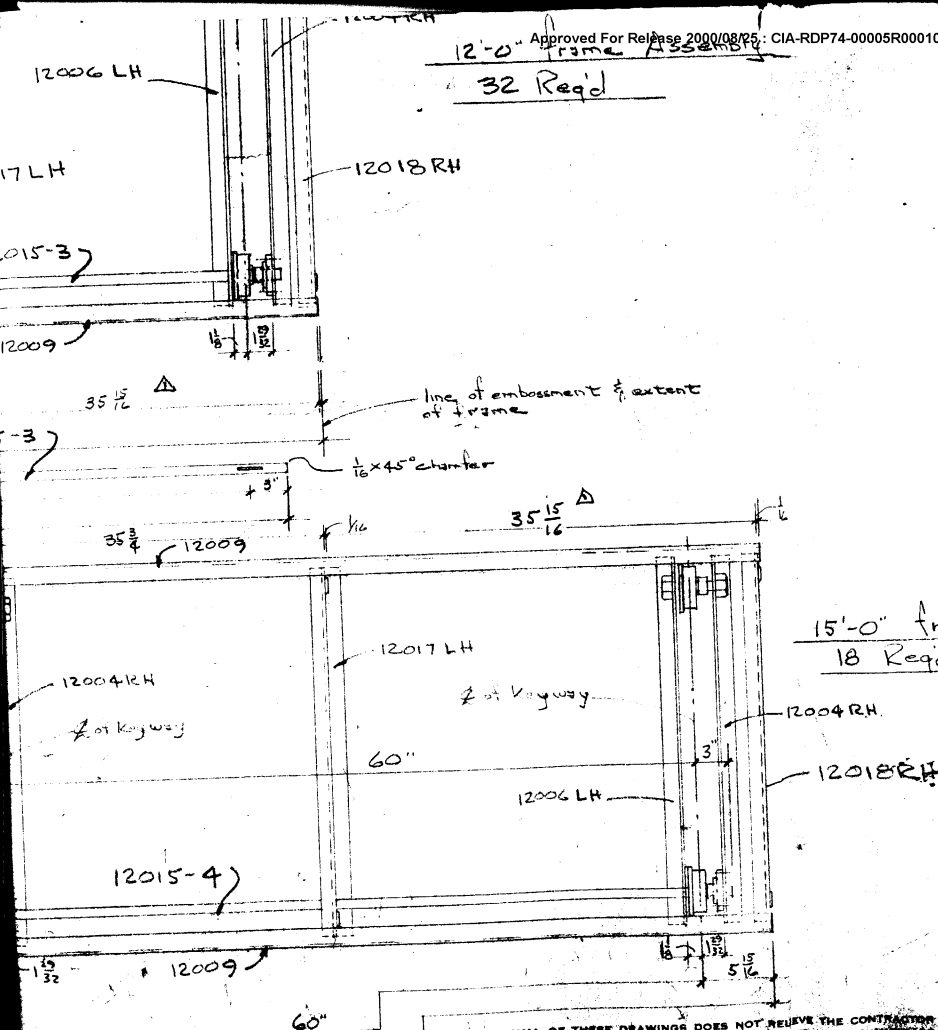 Approved For Release 2000/08/25 : CIA-RDP74-00005R00010
12'-0" frame Assembly
32 Req'd
12006 LH
17 LH
12018 RH
015-3
12009
1 1/8
1 29/32
35 15/16
1
line of embossment & extent
of frame
-3
1/16 x 45° chamfer
3"
35 3/4
12009
1/16
35 15/16
15'-0" fr
18 Req'd
12017 LH
12004 RH
℄ of Keyway
℄ of Keyway
12004 RH
3"
60"
12018 RH
12006 LH
12015-4
1 29/32
12009
1 1/8
1 29/32
5 15/16
60"
OF THESE DRAWINGS DOES NOT RELIEVE THE CONTRACTOR